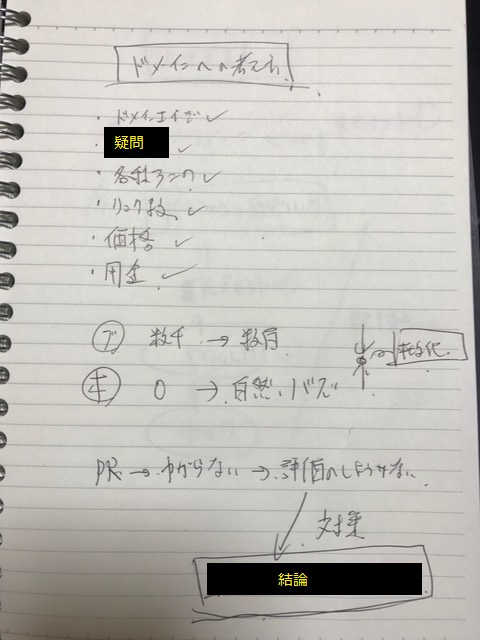 ドメインへの考え方
・ドメインエイジ✓
・疑問 ✓
・各種ランク✓
・リンク数✓
・価格 ✓
・用途 ✓
数千 → 数百
0 → 自然、バズ
PR → わからない → 評価のしようがない
対策
結論